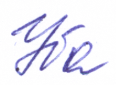 Уба